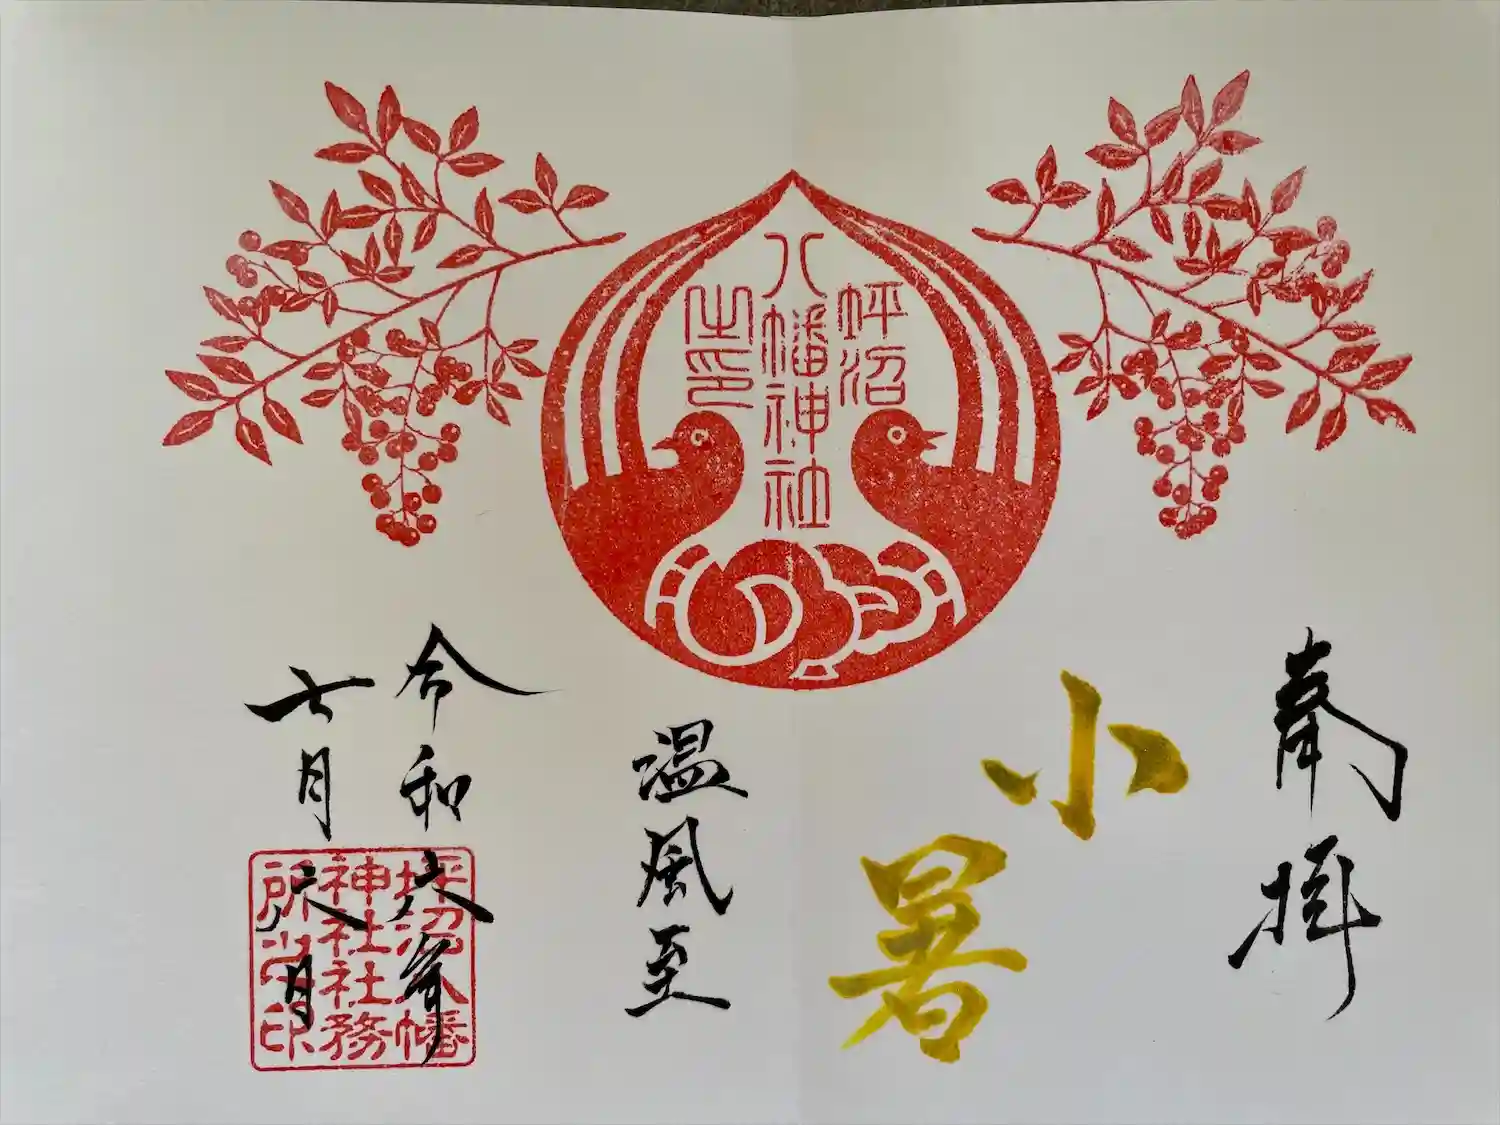 坪沼
八幡神社
之印
奉拝
小暑
温風至
令和六年
七月六日
坪沼八幡
神社社務
所之印